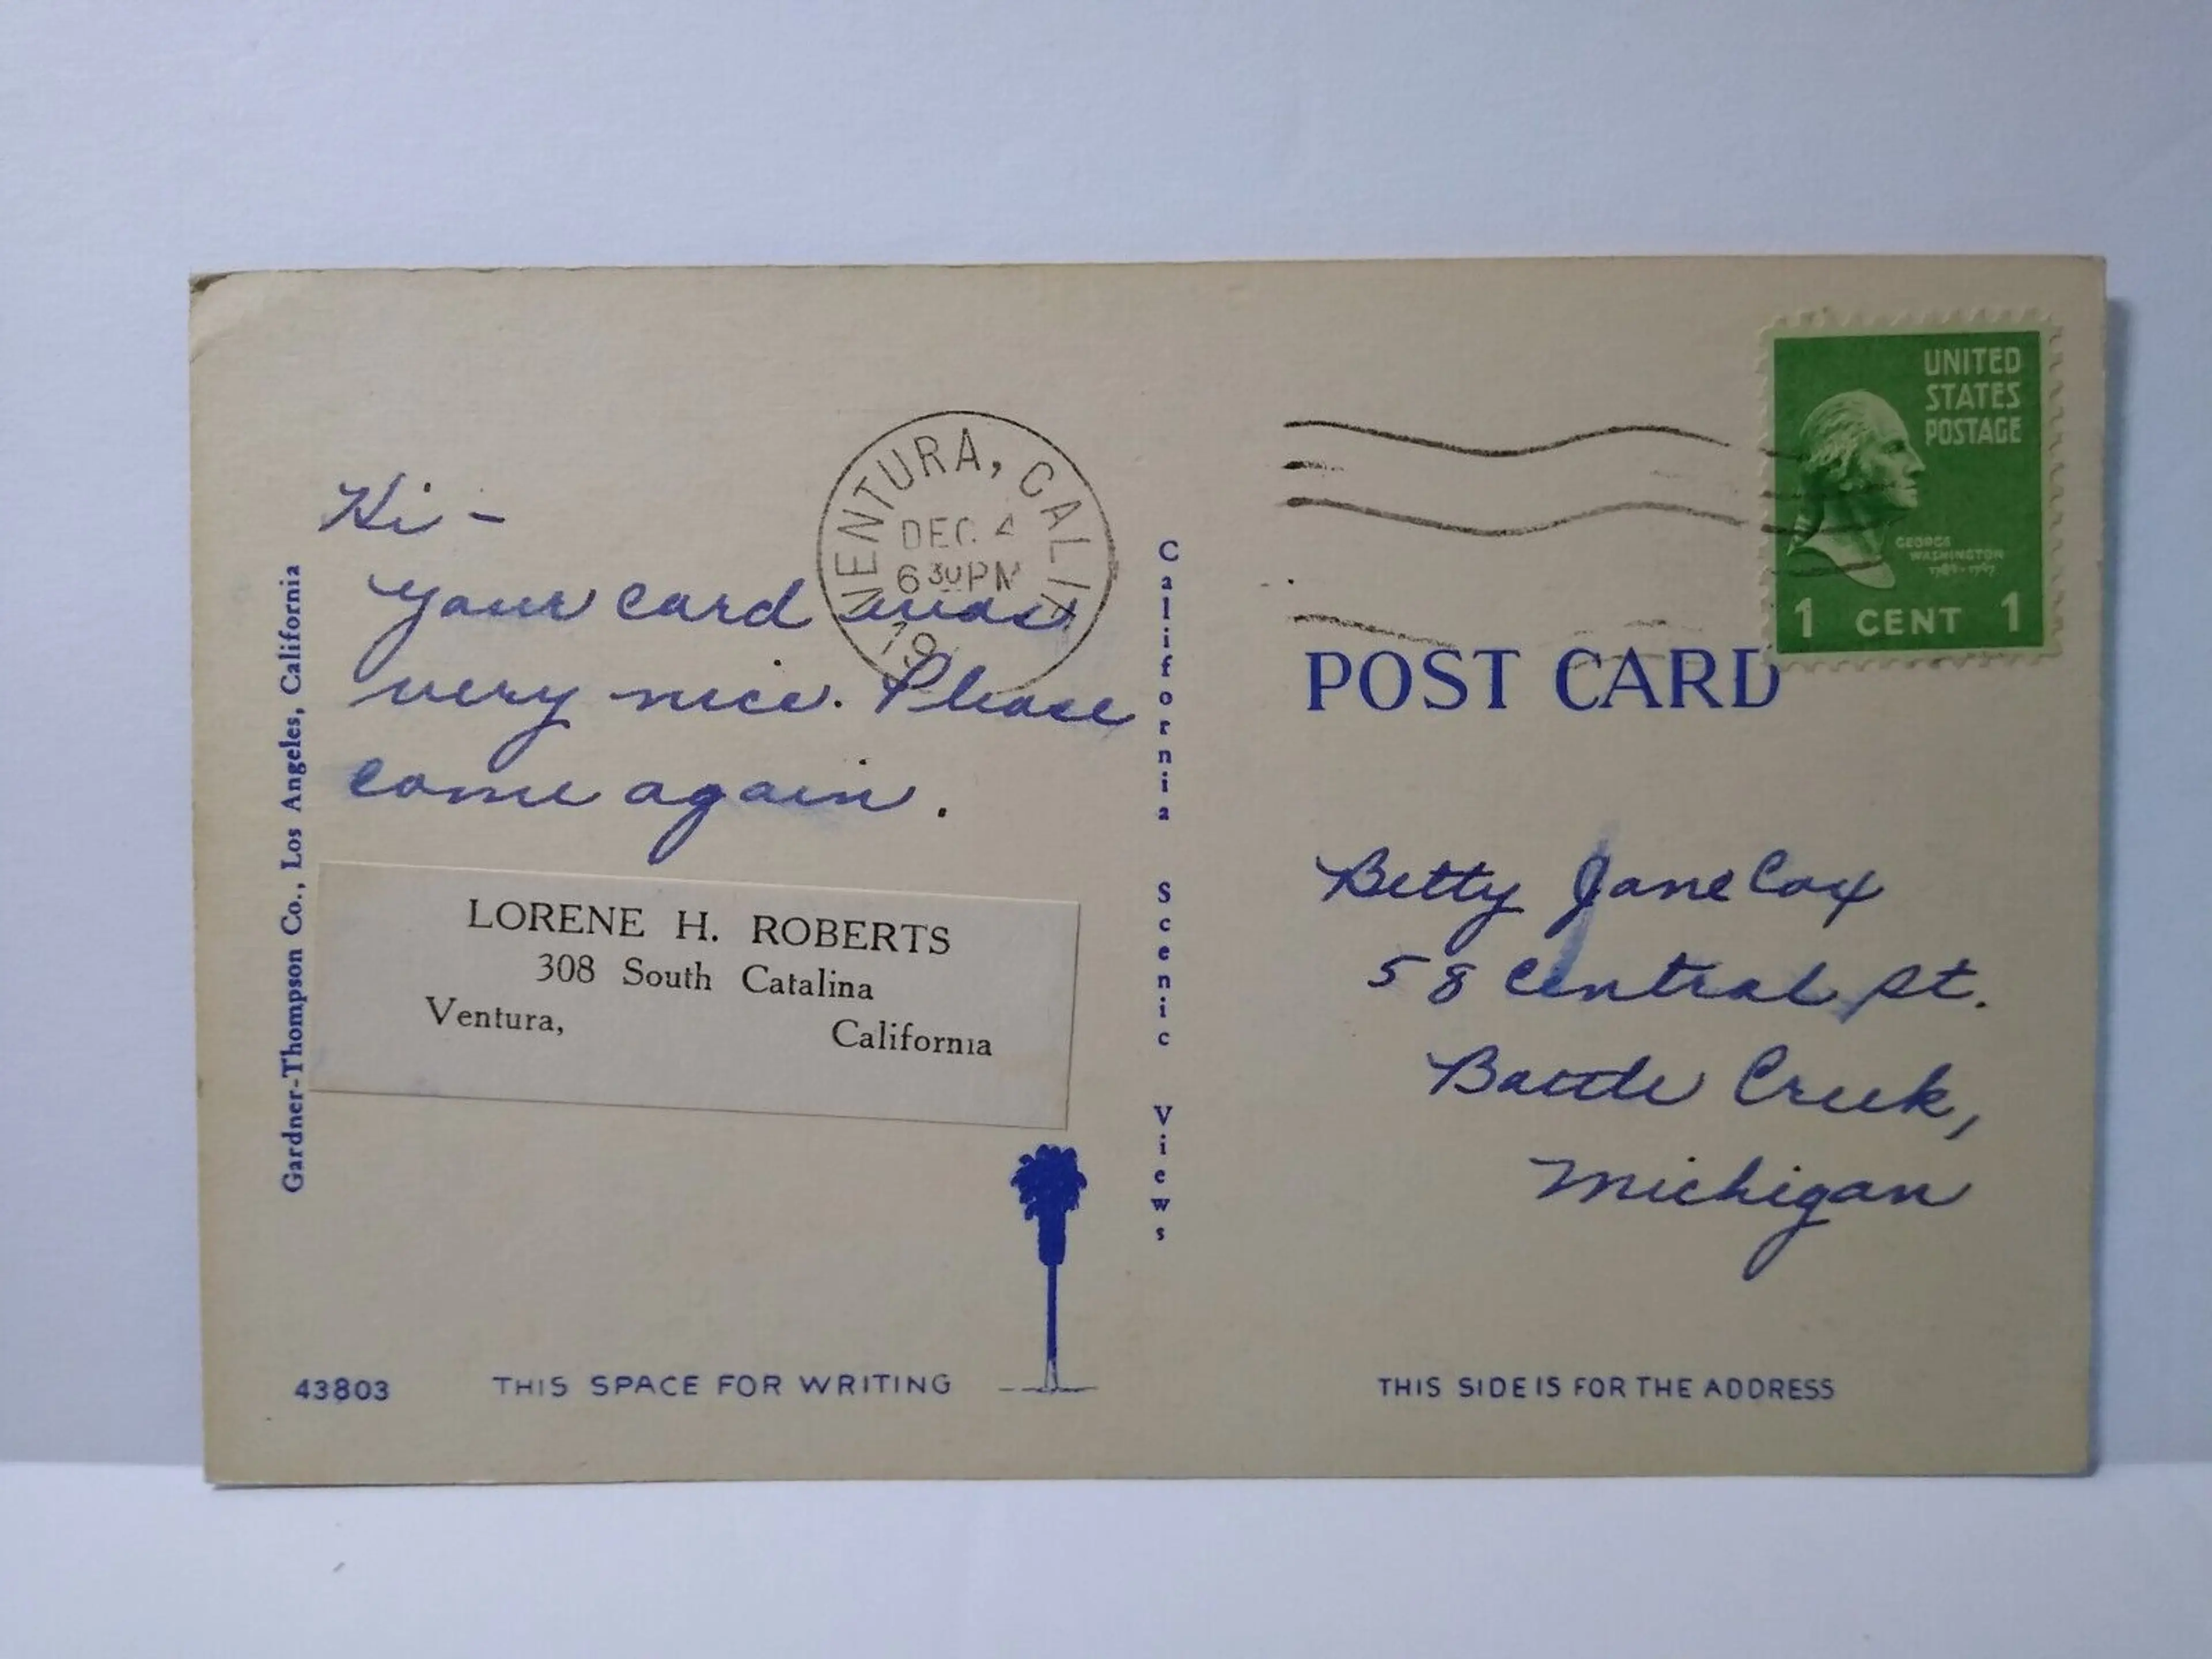 Hi -
Your card was
very nice. Please
come again.
LORENE H. ROBERTS
308 South Catalina
Ventura, California
Gardner-Thompson Co., Los Angeles, California
43803
THIS SPACE FOR WRITING
VENTURA, CALIF
DEC. 4
6 30 PM
19
California Scenic Views
UNITED
STATES
POSTAGE
GEORGE
WASHINGTON
1789-1797
1 CENT 1
POST CARD
Betty Jane Cox
58 Central St.
Battle Creek,
Michigan
THIS SIDE IS FOR THE ADDRESS